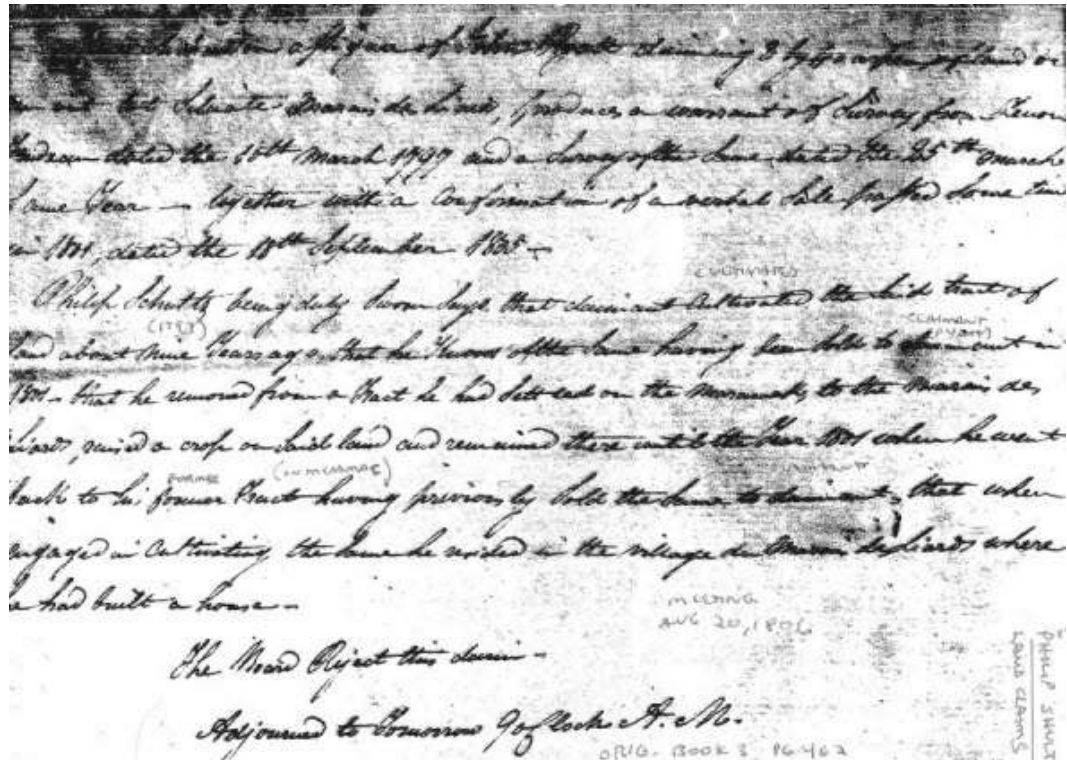 assignee of John Pyatt claiming 8 by 40 arpens of land
situate Marais des Liards, produces a warrant of Survey from Zenon
Trudeau dated the 10th March 1797 and a Survey of the Same dated the 25th March
Same Year — together with a Confirmation of a verbal Sale passed Some time
in 1801, dated the 18th September 1805 —
CULTIVATES
Philip Schultz being duly Sworn Says that claimant Cultivated the Said tract of
(1797) CLAIMANT (PYATT)
land about Nine Years ago, that he Knows of the Same having been Sold to claimant in
1801 — that he removed from a Tract he had Settled on the Maramek to the Marais des
Liards, raised a crop on Said land and remained there until the Year 1801 when he went
FORMER (ON MERAMAC) CLAIMANT
back to his former Tract having previously Sold the Same to claimant, that when
engaged in Cultivating the Same he resided in the village du Marais des Liards where
he had built a house —
MEETING
AUG 20, 1806
The Board Reject this claim —
Adjourned to Tomorrow 9 oClock A. M.
ORIG. BOOK 3 PG 462
PHILIP SHULTZ
LAND CLAIMS